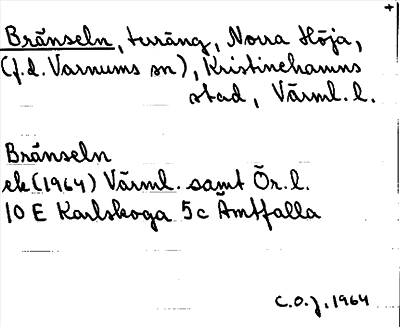 +
Brånseln, terräng, Norra Höja,
(f.d. Varnums sn), Kristinehamns
stad, Värml. l.
Brånseln
ek (1964) Värml. samt Ör. l.
10 E Karlskoga 5c Åmtfalla
C.O.J. 1964